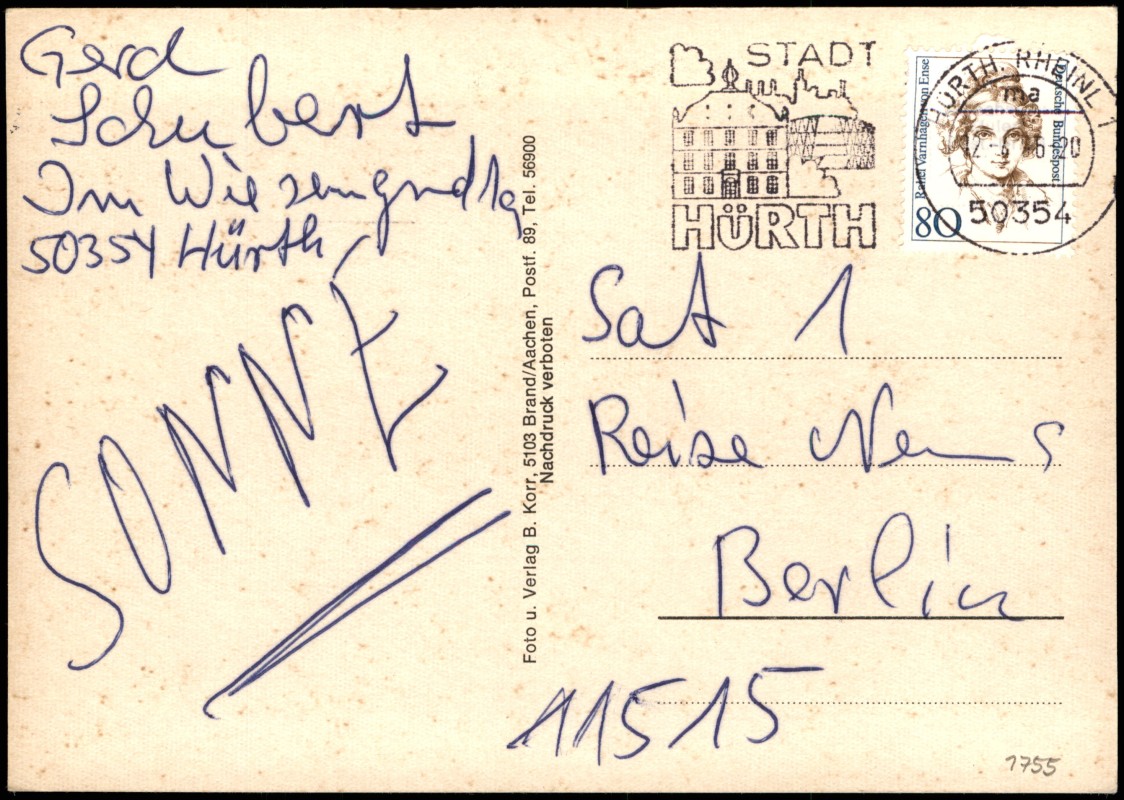 Gerd
Schubert
Im Wiesengrund 1a
50354 Hürth
SONNE
Foto u. Verlag B. Korr, 5103 Brand/Aachen, Postf. 89, Tel. 56900
Nachdruck verboten
STADT
HÜRTH
HÜRTH, RHEINL 1
ma
20
50354
Rahel Varnhagen von Ense
Deutsche Bundespost
80
Sat 1
Reise News
Berlin
11515
1755